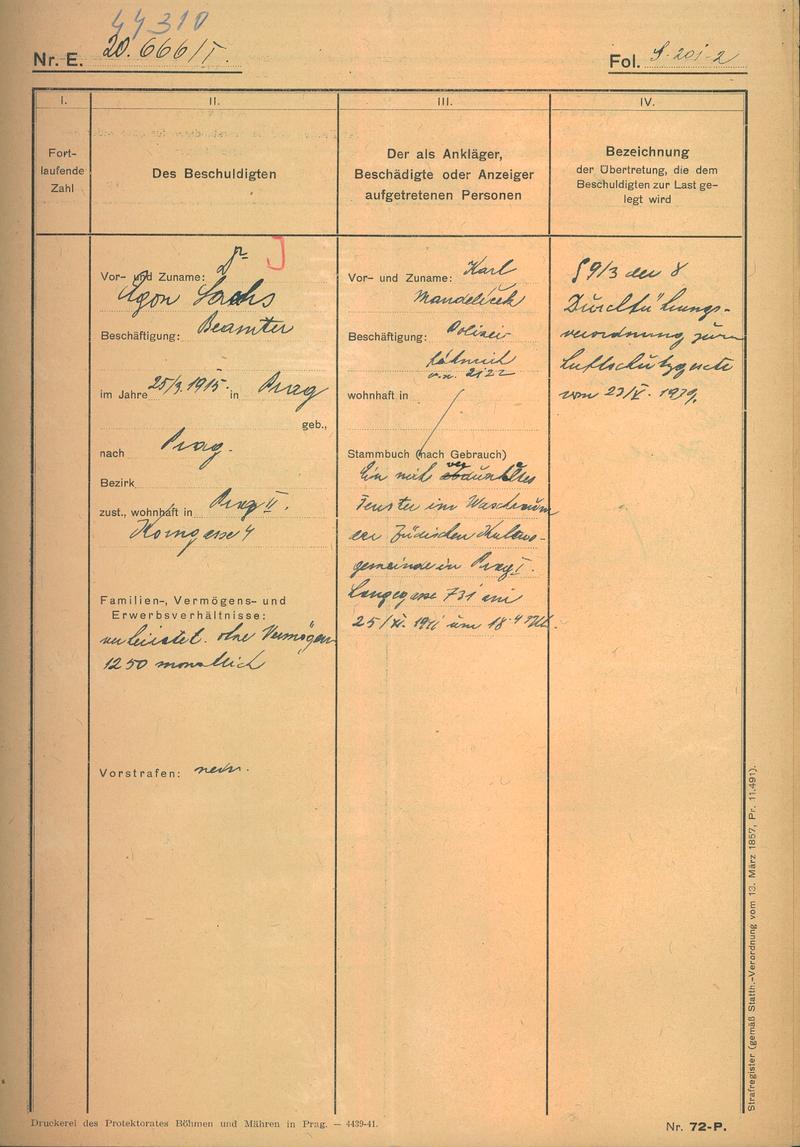 44310
Nr. E. 20.666/I.
Fol. S-201-2
I.
II.
III.
IV.
Fort-
laufende
Zahl
Des Beschuldigten
Der als Ankläger,
Beschädigte oder Anzeiger
aufgetretenen Personen
Bezeichnung
der Übertretung, die dem
Beschuldigten zur Last ge-
legt wird
J
Vor- und Zuname: Dr
Egon Sachs
Beschäftigung: Beamter
im Jahre 25/3. 1915. in Prag
geb.,
nach Prag.
Bezirk
zust., wohnhaft in Prag II.
4
Familien-, Vermögens- und
Erwerbsverhältnisse:
ohne Vermögen
1250 monatlich
Vorstrafen: nein.
Vor- und Zuname: Karl
Mandelíček
Beschäftigung: Polizei-
2122
wohnhaft in
Stammbuch (nach Gebrauch)
Ein nicht verdunkeltes
Fenster im Waschraum
der Jüdischen Kultus-
gemeinde in Prag I.
Langegasse 731 am
25/XI. 1941 um 18
§ 9/3 der 8
Durchführungs-
verordnung zum
Luftschutzgesetz
vom 23/V. 1939.
Strafregister (gemäß Statth.-Verordnung vom 13. März 1857, Pr. 11.491).
Druckerei des Protektorates Böhmen und Mähren in Prag. — 4439-41.
Nr. 72-P.